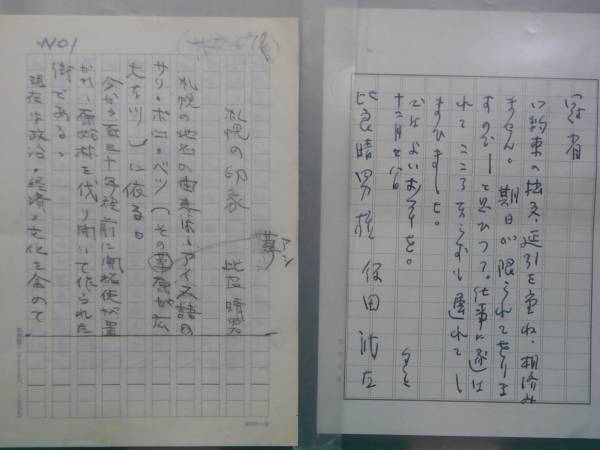 NO1
札幌の印象
比良晴男
札幌の地名の由来は、アイヌ語の
サリ・ポロ・ペツ(その葦原が広
大な川)に依る。
葦
アシ
今から百三十年程前に開拓使が置
かれ、原始林を伐り開いて作られた
街である。
現在は政治・経済・文化を含めて
冠省
御約束の拙文、延引を重ね、相済み
ません。期日が限られてをりま
すので―と思ひつつ、仕事に追は
れてこころならずも遅れてし
まひました。
よいお年を。
十二月
比良晴男様
保田